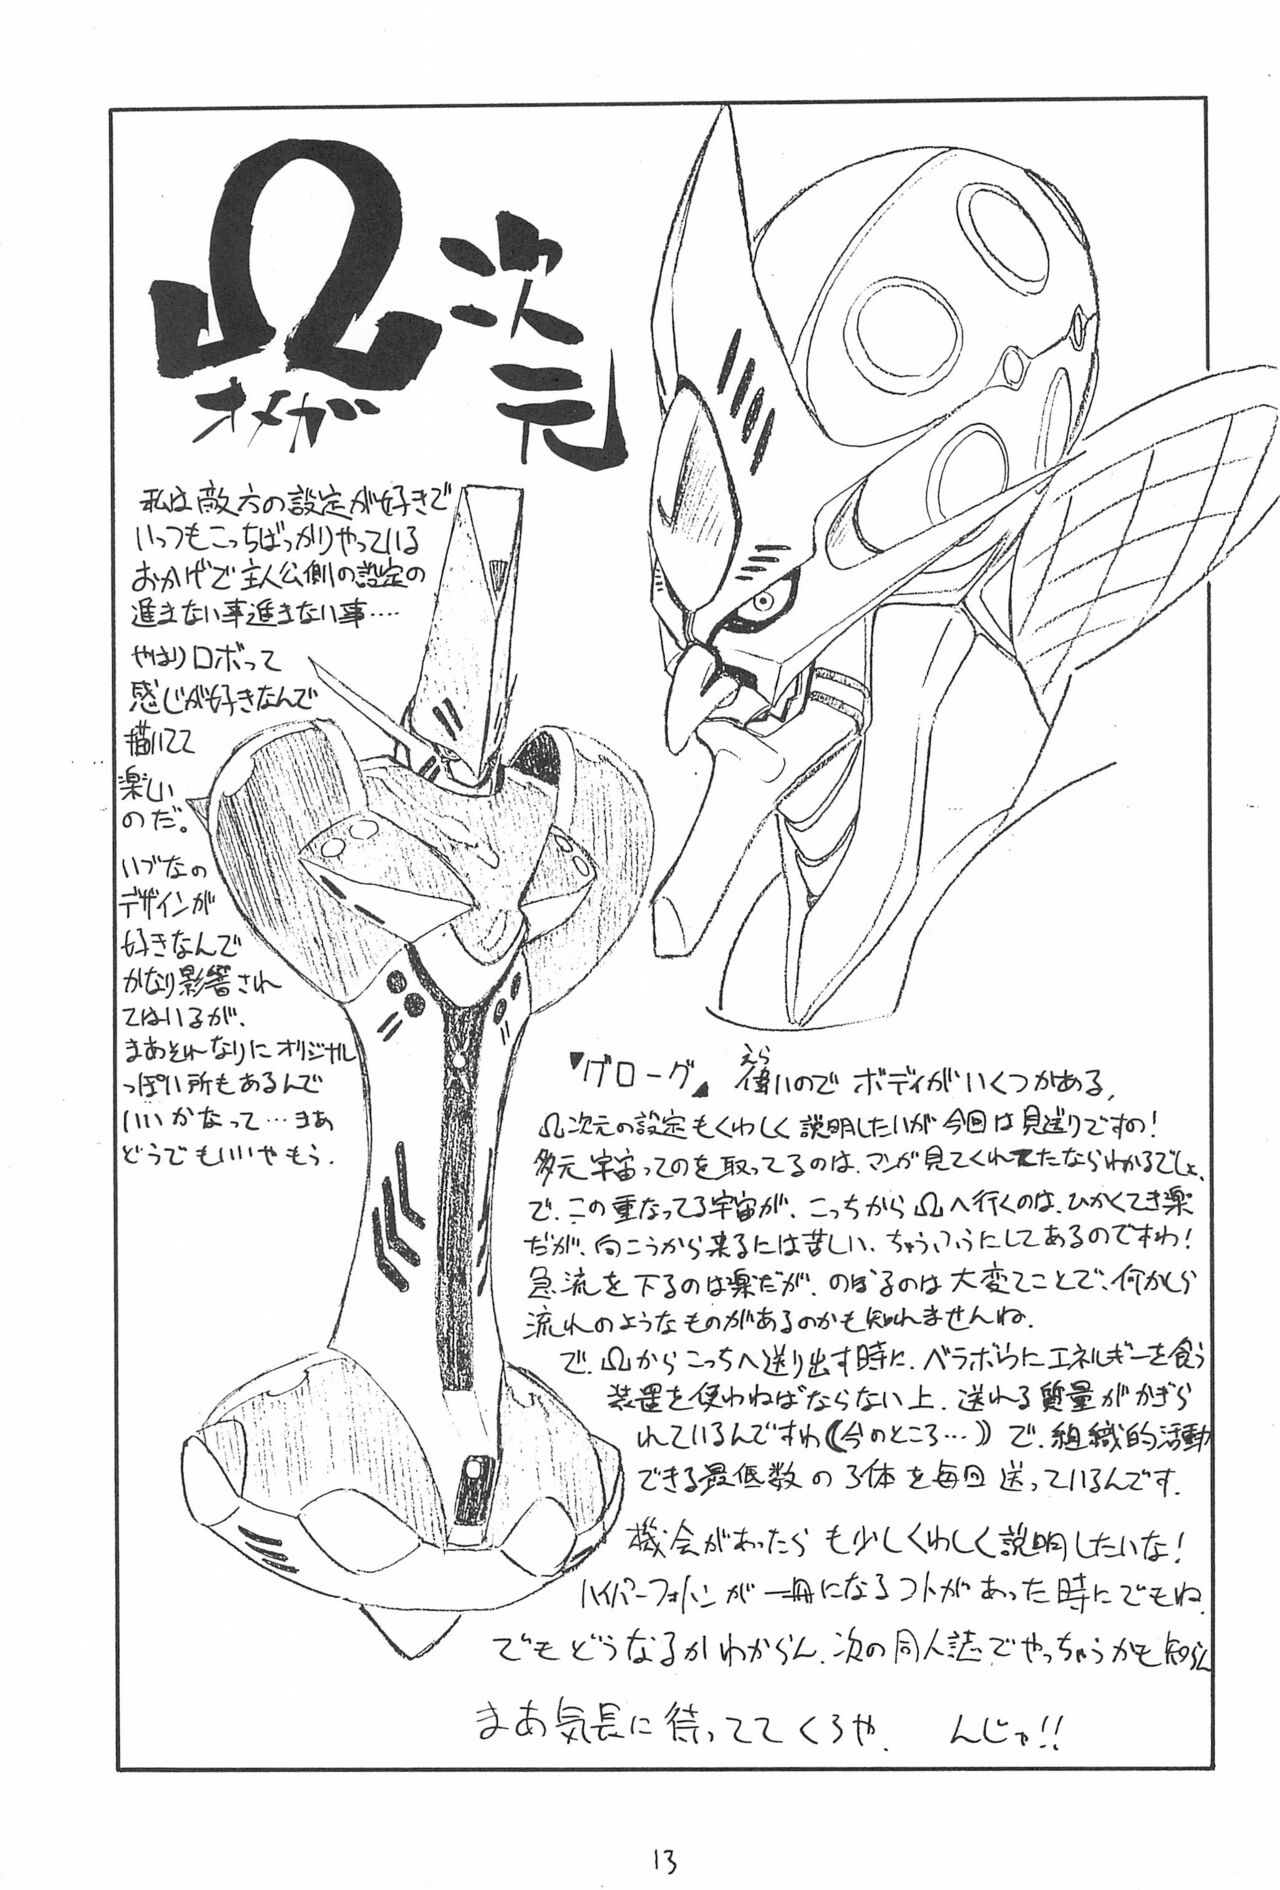 Ω次元
オメガ
私は敵方の設定が好きで
いつもこっちばっかりやっている
おかげで主人公側の設定の
進まない事進まない事‥‥
やはりロボって
感じが好きなんで
描いてて
楽しい
のだ。
いづなの
デザインが
好きなんで
かなり影響され
てはいるが、
まあそれなりにオリジナル
っぽい所もあるんで
いいかなって…まあ
どうでもいいやもう.
『グローグ』 偉いのでボディがいくつかある,
えら
Ω次元の設定もくわしく説明したいが今回は見送りですの!
多元宇宙ってのを取ってるのは、マンガ見てくれてたならわかるでしょ、
で、この重なってる宇宙が、こっちからΩへ行くのは、ひかくてき楽
だが、向こうから来るには苦しい、ちゅうふうにしてあるのですわ!
急流を下るのは楽だが、のぼるのは大変てことで、何かしら
流れのようなものがあるのかも知れませんね.
で、Ωからこっちへ送り出す時に、ベラボらにエネルギーを食う
装置を使わねばならない上、送れる質量がかぎら
れているんですわ((今のところ…))で、組織的活動
できる最低数の3体を毎回送っているんです.
機会があったらも少しくわしく説明したいな!
ハイパーフォトンが一冊になるコトがあった時にでもね.
でもどうなるかわからん.次の同人誌でやっちゃうかも知らん
まあ気長に待っててくろや. んじゃ!!
13